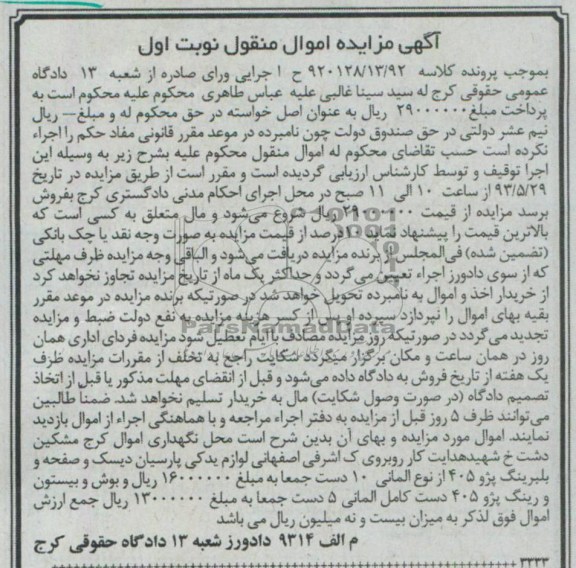 آگهی مزایده اموال منقول نوبت اول
بموجب پرونده کلاسه ۹۲۰۱۲۸/۱۳/۹۲ ح ا جرایی ورای صادره از شعبه ۱۳ دادگاه
عمومی حقوقی کرج له سید سینا غالبی علیه عباس طاهری محکوم علیه محکوم است به
پرداخت مبلغ ۲۹۰۰۰۰۰۰ ریال به عنوان اصل خواسته در حق محکوم له و مبلغ— ریال
نیم عشر دولتی در حق صندوق دولت چون نامبرده در موعد مقرر قانونی مفاد حکم را اجراء
نکرده است حسب تقاضای محکوم له اموال منقول محکوم علیه بشرح زیر به وسیله این
اجرا توقیف و توسط کارشناس ارزیابی گردیده است و مقرر است از طریق مزایده در تاریخ
۹۳/۵/۲۹ از ساعت ۱۰ الی ۱۱ صبح در محل اجرای احکام مدنی دادگستری کرج بفروش
برسد مزایده از قیمت ریال شروع می‌شود و مال متعلق به کسی است که
بالاترین قیمت را پیشنهاد نماید ۱۰ درصد از قیمت مزایده به صورت وجه نقد یا چک بانکی
(تضمین شده) فی‌المجلس از برنده مزایده دریافت می‌شود و الباقی وجه مزایده ظرف مهلتی
که از سوی دادورز اجراء تعیین می‌گردد و حداکثر یک ماه از تاریخ مزایده تجاوز نخواهد کرد
از خریدار اخذ و اموال به نامبرده تحویل خواهد شد در صورتیکه برنده مزایده در موعد مقرر
بقیه بهای اموال را نپردازد سپرده او پس از کسر هزینه مزایده به نفع دولت ضبط و مزایده
تجدید می‌گردد در صورتیکه روز مزایده مصادف با ایام تعطیل شود مزایده فردای اداری همان
روز در همان ساعت و مکان برگزار میگردد شکایت راجع به تخلف از مقررات مزایده ظرف
یک هفته از تاریخ فروش به دادگاه داده می‌شود و قبل از انقضای مهلت مذکور یا قبل از اتخاذ
تصمیم دادگاه (در صورت وصول شکایت) مال به خریدار تسلیم نخواهد شد. ضمناً طالبین
می‌توانند ظرف ۵ روز قبل از مزایده به دفتر اجراء مراجعه و با هماهنگی اجراء از اموال بازدید
نمایند. اموال مورد مزایده و بهای آن بدین شرح است محل نگهداری اموال کرج مشکین
دشت خ شهیدهدایت کار روبروی ک اشرفی اصفهانی لوازم یدکی پارسیان دیسک و صفحه و
بلبرینگ پژو ۴۰۵ از نوع المانی ۱۰ دست جمعا به مبلغ ۱۶۰۰۰۰۰۰ ریال و بوش و پیستون
و رینگ پژو ۴۰۵ دست کامل المانی ۵ دست جمعا به مبلغ ۱۳۰۰۰۰۰۰ ریال جمع ارزش
اموال فوق لذکر به میزان بیست و نه میلیون ریال می باشد
م الف ۹۳۱۴ دادورز شعبه ۱۳ دادگاه حقوقی کرج
ParsNamadData